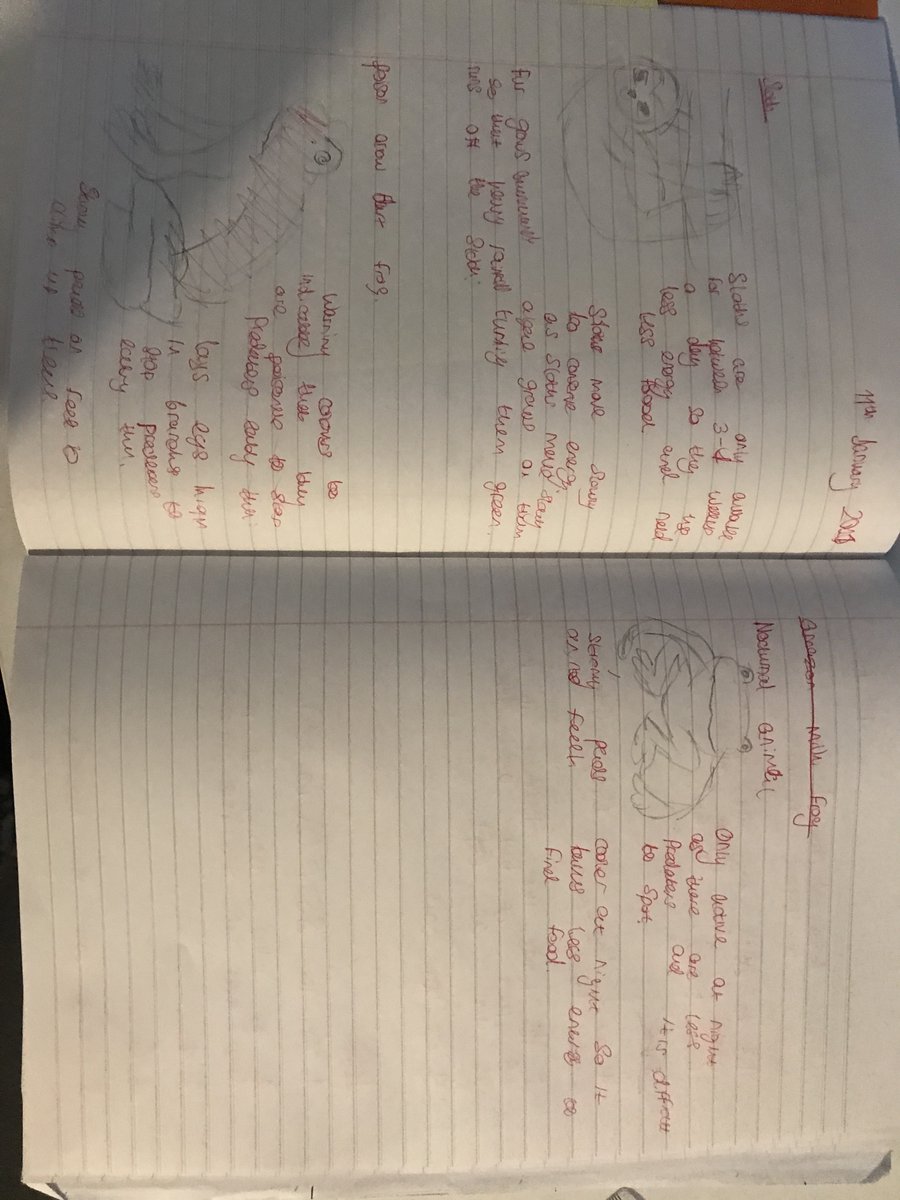 11th January 2021
Sloth
Sloths are only awake
for between 3-4 hours
a day so they use
less energy and need
less food.
Sloths move slowly
to conserve energy.
as sloths move slow
algae grows on them
turning them green.
Fur grows
so that heavy rainfall
runs off the sloth.
poison arrow dart frog.
Warning colours to
indicate they
are poisonous to stop
Predators eating them.
lays eggs high
in branches to
stop predators
eating them.
Strong pads on feet to
climb up trees
Amazon milk frog
Nocturnal animal
Only active at night
as there are less
Predators and it is difficult
to spot.
Strong pads
on its feet.
cooler at night so it
burns less energy to
find food.